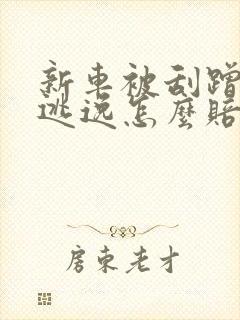 新車被刮蹭
逃逸怎麼賠
房東老才